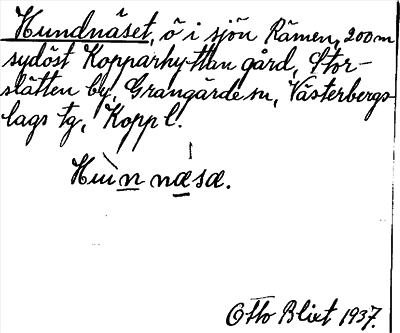 Hundnäset, ö i sjön Rämen, 200 m
sydöst Kopparhyttan gård, Stor-
slätten by, Grangärde sn, Västerbergs-
lags tg, Kopp l.
Hùn næsæ.
Otto Blixt 1937.